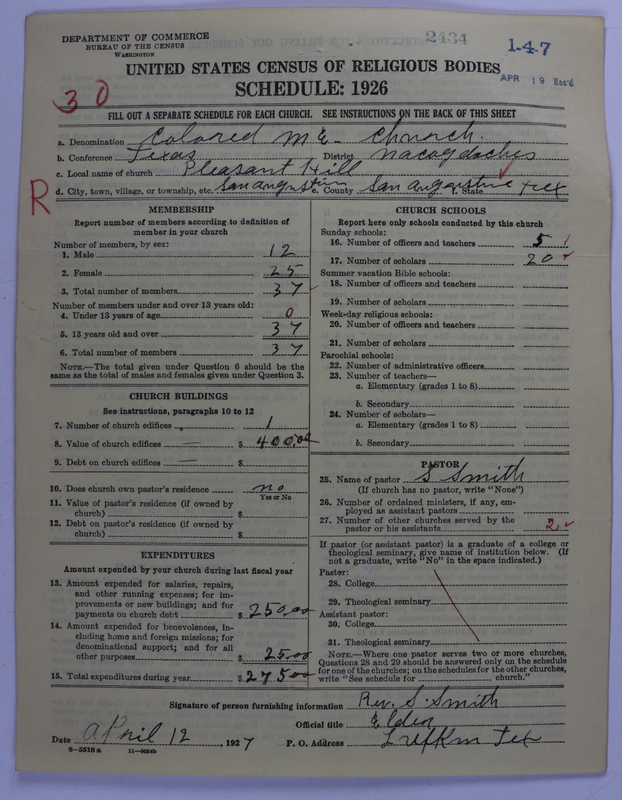 2434
1-4-7
DEPARTMENT OF COMMERCE
BUREAU OF THE CENSUS
WASHINGTON
APR 19 Rec'd
UNITED STATES CENSUS OF RELIGIOUS BODIES
SCHEDULE: 1926
30
FILL OUT A SEPARATE SCHEDULE FOR EACH CHURCH. SEE INSTRUCTIONS ON THE BACK OF THIS SHEET
a. Denomination Colored M E Church.
b. Conference Texas District Nacogdoches
c. Local name of church Pleasant Hill
d. City, town, village, or township, etc. San Augustine e. County San Augustine f. State Tex
R
MEMBERSHIP
Report number of members according to definition of
member in your church
Number of members, by sex:
1. Male 12
2. Female 25
3. Total number of members 37
Number of members under and over 13 years old:
4. Under 13 years of age 0
5. 13 years old and over 37
6. Total number of members 37
NOTE.—The total given under Question 6 should be the
same as the total of males and females given under Question 3.
CHURCH BUILDINGS
See instructions, paragraphs 10 to 12
7. Number of church edifices 1
8. Value of church edifices $ 400.00
9. Debt on church edifices $
10. Does church own pastor's residence no
Yes or No
11. Value of pastor's residence (if owned by
church) $
12. Debt on pastor's residence (if owned by
church) $
EXPENDITURES
Amount expended by your church during last fiscal year
13. Amount expended for salaries, repairs,
and other running expenses; for im-
provements or new buildings; and for
payments on church debt $ 250.00
14. Amount expended for benevolences, in-
cluding home and foreign missions; for
denominational support; and for all
other purposes $ 25.00
15. Total expenditures during year $ 275.00
CHURCH SCHOOLS
Report here only schools conducted by this church
Sunday schools:
16. Number of officers and teachers 5
17. Number of scholars 20
Summer vacation Bible schools:
18. Number of officers and teachers
19. Number of scholars
Week-day religious schools:
20. Number of officers and teachers
21. Number of scholars
Parochial schools:
22. Number of administrative officers
23. Number of teachers—
a. Elementary (grades 1 to 8)
b. Secondary
24. Number of scholars—
a. Elementary (grades 1 to 8)
b. Secondary
PASTOR
25. Name of pastor S Smith
(If church has no pastor, write "None")
26. Number of ordained ministers, if any, em-
ployed as assistant pastors
27. Number of other churches served by the
pastor or his assistants 2
If pastor (or assistant pastor) is a graduate of a college or
theological seminary, give name of institution below. (If
not a graduate, write "No" in the space indicated.)
Pastor:
28. College
29. Theological seminary
Assistant pastor:
30. College
31. Theological seminary
NOTE.—Where one pastor serves two or more churches,
Questions 28 and 29 should be answered only on the schedule
for one of the churches; on the schedules for the other churches,
write "See schedule for church."
Signature of person furnishing information Rev. S. Smith
Official title Elder
Date April 12, 1927 P. O. Address Lufkin Tex
8—5518 a